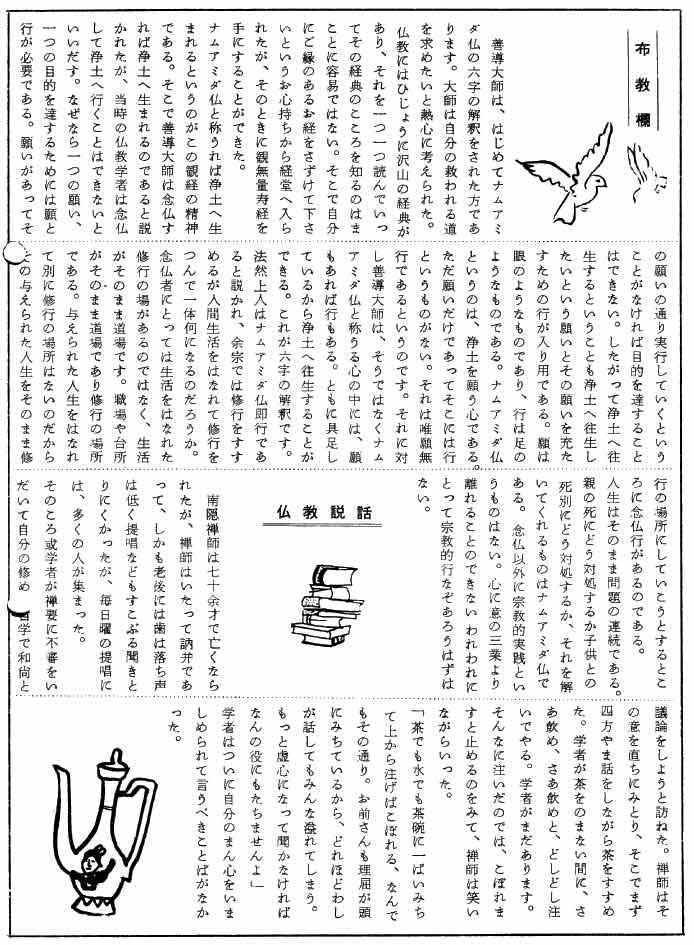 布教欄
善導大師は、はじめてナムアミ
ダ仏の六字の解釈をされた方であ
ります。大師は自分の救われる道
を求めたいと熱心に考えられた。
仏教にはひじょうに沢山の経典が
あり、それを一つ一つ読んでいっ
てその経典のこころを知るのはま
ことに容易ではない。そこで自分
にご縁のあるお経をさずけて下さ
いというお心持ちから経堂へ入ら
れたが、そのときに観無量寿経を
手にすることができた。
ナムアミダ仏と称うれば浄土へ生
まれるというのがこの観経の精神
である。そこで善導大師は念仏す
れば浄土へ生まれるのであると説
かれたが、当時の仏教学者は念仏
して浄土へ行くことはできないと
いいだす。なぜなら一つの願い、
一つの目的を達するためには願と
行が必要である。願いがあってそ
の願いの通り実行していくという
ことがなければ目的を達すること
はできない。したがって浄土へ往
生するということも浄土へ往生し
たいという願いとその願いを充た
すための行が入り用である。願は
眼のようなものであり、行は足の
ようなものである。ナムアミダ仏
というのは、浄土を願う心である。
ただ願いだけであってそこには行
というものがない。それは唯願無
行であるというのです。それに対
し善導大師は、そうではなくナム
アミダ仏と称うる心の中には、願
もあれば行もある。ともに具足し
ているから浄土へ往生することが
できる。これが六字の解釈です。
法然上人はナムアミダ仏即行であ
ると説かれ、余宗では修行をすす
めるが人間生活をはなれて修行を
つんで一体何になるのだろうか。
念仏者にとっては生活をはなれた
修行の場があるのではなく、生活
がそのまま道場です。職場や台所
がそのまま道場であり修行の場所
である。与えられた人生をはなれ
て別に修行の場所はないのだから
その与えられた人生をそのまま修
行の場所にしていこうとするとこ
ろに念仏行があるのである。
人生はそのまま問題の連続である。
親の死にどう対処するか子供との
死別にどう対処するか、それを解
いてくれるものはナムアミダ仏で
ある。念仏以外に宗教的実践とい
うものはない。心に意の三業より
離れることのできないわれわれに
とって宗教的行なぞあろうはずは
ない。
仏教説話
南隠禅師は七十余才で亡くなら
れたが、禅師はいたって訥弁であ
って、しかも老後には歯は落ち声
は低く提唱などもすこぶる聞きと
りにくかったが、毎日曜の提唱に
は、多くの人が集まった。
そのころ或学者が禅要に不審をい
だいて自分の修め　哲学で和尚と
議論をしようと訪ねた。禅師はそ
の意を直ちにみとり、そこでまず
四方やま話をしながら茶をすすめ
た。学者が茶をのまない間に、さ
あ飲め、さあ飲めと、どしどし注
いでやる。学者がまだあります。
そんなに注いだのでは、こぼれま
すと止めるのをみて、禅師は笑い
ながらいった。
「茶でも水でも茶碗に一ぱいみち
て上から注げばこぼれる、なんで
もその通り。お前さんも理屈が頭
にみちているから、どれほどわし
が話してもみんな溢れてしまう。
もっと虚心になって聞かなければ
なんの役にもたちませんよ」
学者はついに自分のまん心をいま
しめられて言うべきことばがなか
った。